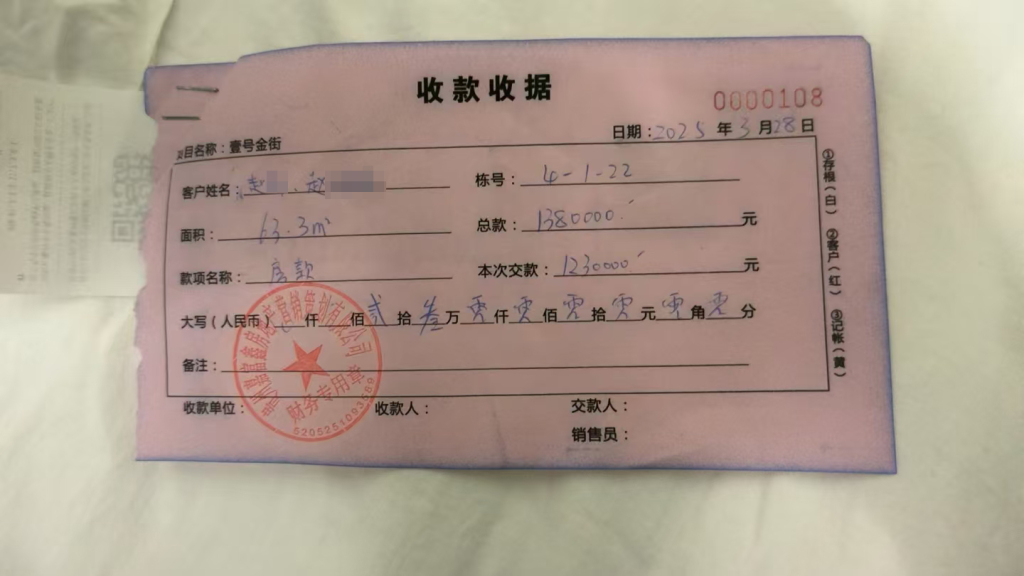 收款收据
0000108
日期：2025年3月28日
目名称：壹号金街
客户姓名：赵 、赵
栋号：4-1-22
面积：63.3m²
总款：1380000元
款项名称：房款
本次交款：1230000元
大写（人民币） 仟 佰贰拾叁万零仟零佰零拾零元零角零分
备注：
收款单位：
收款人：
交款人：
销售员：
①存根（白）②客户（红）③记帐（黄）
富鑫房地产营销策划有限公司
财务专用章